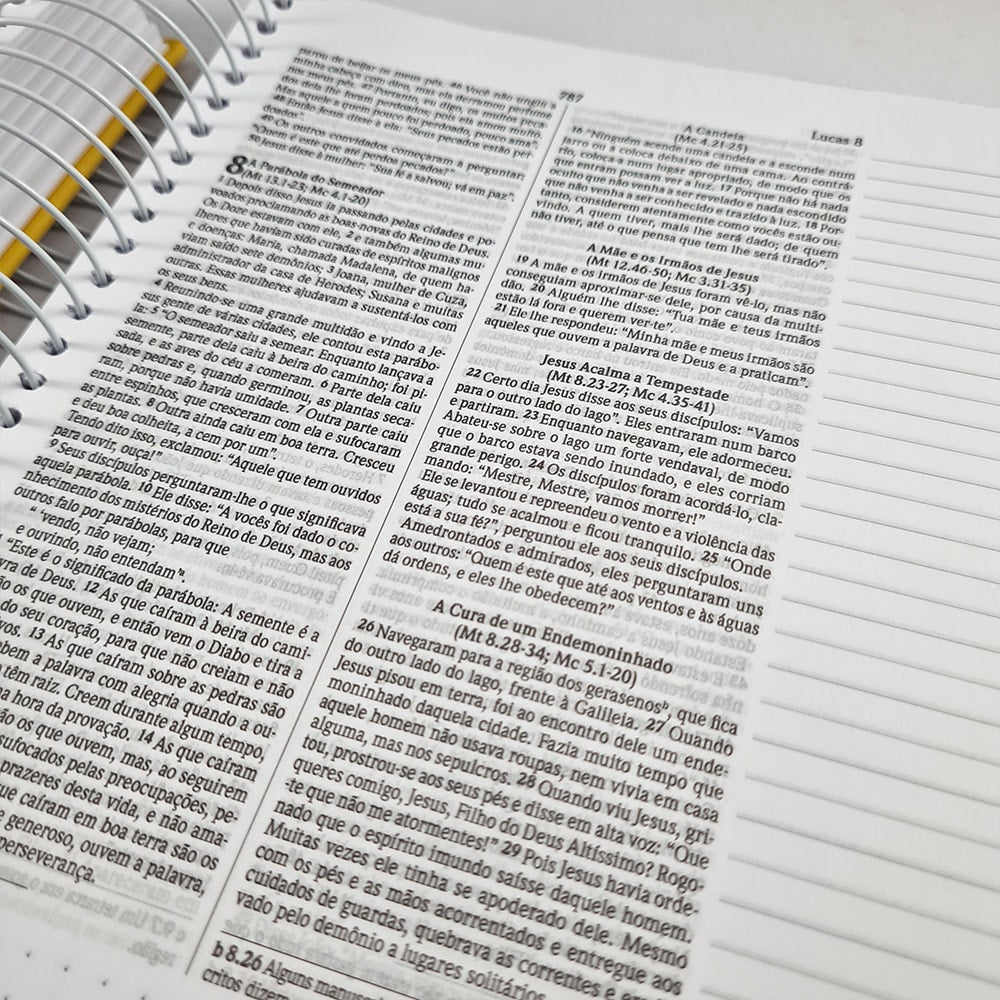 787
Lucas 8
parou de beijar os meus pés. 46 Você não ungiu a
minha cabeça com óleo, mas ela derramou perfume
nos meus pés. 47 Portanto, eu digo, os muitos peca-
dos dela lhe foram perdoados; pois ela amou muito.
Mas aquele a quem pouco foi perdoado, pouco ama”.
48 Então Jesus disse à ela: “Seus pecados estão per-
doados”.
49 Os outros convidados começaram a perguntar:
“Quem é este que até perdoa pecados?”
se Jesus disse à mulher: “Sua fé a salvou; vá em paz”.
8 A Parábola do Semeador
(Mt 13.1-23; Mc 4.1-20)
1 Depois disso Jesus ia passando pelas cidades e po-
voados proclamando as boas-novas do Reino de Deus.
Os Doze estavam com ele, 2 e também algumas mu-
lheres que haviam sido curadas de espíritos malignos
e doenças: Maria, chamada Madalena, de quem ha-
viam saído sete demônios; 3 Joana, mulher de Cuza,
administrador da casa de Herodes; Susana e muitas
outras. Essas mulheres ajudavam a sustentá-los com
os seus bens.
4 Reunindo-se uma grande multidão e vindo a Je-
sus gente de várias cidades, ele contou esta parábo-
la: 5 “O semeador saiu a semear. Enquanto lançava a
semente, parte dela caiu à beira do caminho; foi pi-
sada, e as aves do céu a comeram. 6 Parte dela caiu
sobre pedras e, quando germinou, as plantas seca-
ram, porque não havia umidade. 7 Outra parte caiu
entre espinhos, que cresceram com ela e sufocaram
as plantas. 8 Outra ainda caiu em boa terra. Cresceu
e deu boa colheita, a cem por um”.
Tendo dito isso, exclamou: “Aquele que tem ouvidos
para ouvir, ouça!”
9 Seus discípulos perguntaram-lhe o que significava
aquela parábola. 10 Ele disse: “A vocês foi dado o co-
nhecimento dos mistérios do Reino de Deus, mas aos
outros falo por parábolas, para que
“ ‘vendo, não vejam;
e ouvindo, não entendam’ᵃ.
“Este é o significado da parábola: A semente é a
vra de Deus. 12 As que caíram à beira do cami-
o os que ouvem, e então vem o Diabo e tira a
do seu coração, para que não creiam e não
vos. 13 As que caíram sobre as pedras são
bem a palavra com alegria quando a ou-
têm raiz. Creem durante algum tempo,
a hora da provação. 14 As que caíram
ão os que ouvem, mas, ao seguirem
sufocados pelas preocupações, pe-
prazeres desta vida, e não ama-
ue caíram em boa terra são os
e generoso, ouvem a palavra,
perseverança.
A Candeia
(Mc 4.21-25)
16 “Ninguém acende uma candeia e a esconde num
jarro ou a coloca debaixo de uma cama. Ao contrá-
rio, coloca-a num lugar apropriado, de modo que os
que entram possam ver a luz. 17 Porque não há nada
oculto que não venha a ser revelado e nada escondido
que não venha a ser conhecido e trazido à luz. 18 Por-
tanto, considerem atentamente como vocês estão ou-
vindo. A quem tiver, mais lhe será dado; de quem
não tiver, até o que pensa que tem lhe será tirado”.
A Mãe e os Irmãos de Jesus
(Mt 12.46-50; Mc 3.31-35)
19 A mãe e os irmãos de Jesus foram vê-lo, mas não
conseguiam aproximar-se dele, por causa da multi-
dão. 20 Alguém lhe disse: “Tua mãe e teus irmãos
estão lá fora e querem ver-te”.
21 Ele lhe respondeu: “Minha mãe e meus irmãos são
aqueles que ouvem a palavra de Deus e a praticam”.
Jesus Acalma a Tempestade
(Mt 8.23-27; Mc 4.35-41)
22 Certo dia Jesus disse aos seus discípulos: “Vamos
para o outro lado do lago”. Eles entraram num barco
e partiram. 23 Enquanto navegavam, ele adormeceu.
Abateu-se sobre o lago um forte vendaval, de modo
que o barco estava sendo inundado, e eles corriam
grande perigo. 24 Os discípulos foram acordá-lo, cla-
mando: “Mestre, Mestre, vamos morrer!”
Ele se levantou e repreendeu o vento e a violência das
águas; tudo se acalmou e ficou tranquilo. 25 “Onde
está a sua fé?”, perguntou ele aos seus discípulos.
Amedrontados e admirados, eles perguntaram uns
aos outros: “Quem é este que até aos ventos e às águas
dá ordens, e eles lhe obedecem?”
A Cura de um Endemoninhado
(Mt 8.28-34; Mc 5.1-20)
26 Navegaram para a região dos gerasenosᵇ, que fica
do outro lado do lago, frente à Galileia. 27 Quando
Jesus pisou em terra, foi ao encontro dele um ende-
moninhado daquela cidade. Fazia muito tempo que
aquele homem não usava roupas, nem vivia em casa
alguma, mas nos sepulcros. 28 Quando viu Jesus, gri-
tou, prostrou-se aos seus pés e disse em alta voz: “Que
queres comigo, Jesus, Filho do Deus Altíssimo? Rogo-
-te que não me atormentes!” 29 Pois Jesus havia orde-
nado que o espírito imundo saísse daquele homem.
Muitas vezes ele tinha se apoderado dele. Mesmo
com os pés e as mãos acorrentados e entregue aos
cuidados de guardas, quebrava as correntes e era
vado pelo demônio a lugares solitários.
b 8.26 Alguns manus
critos dizem